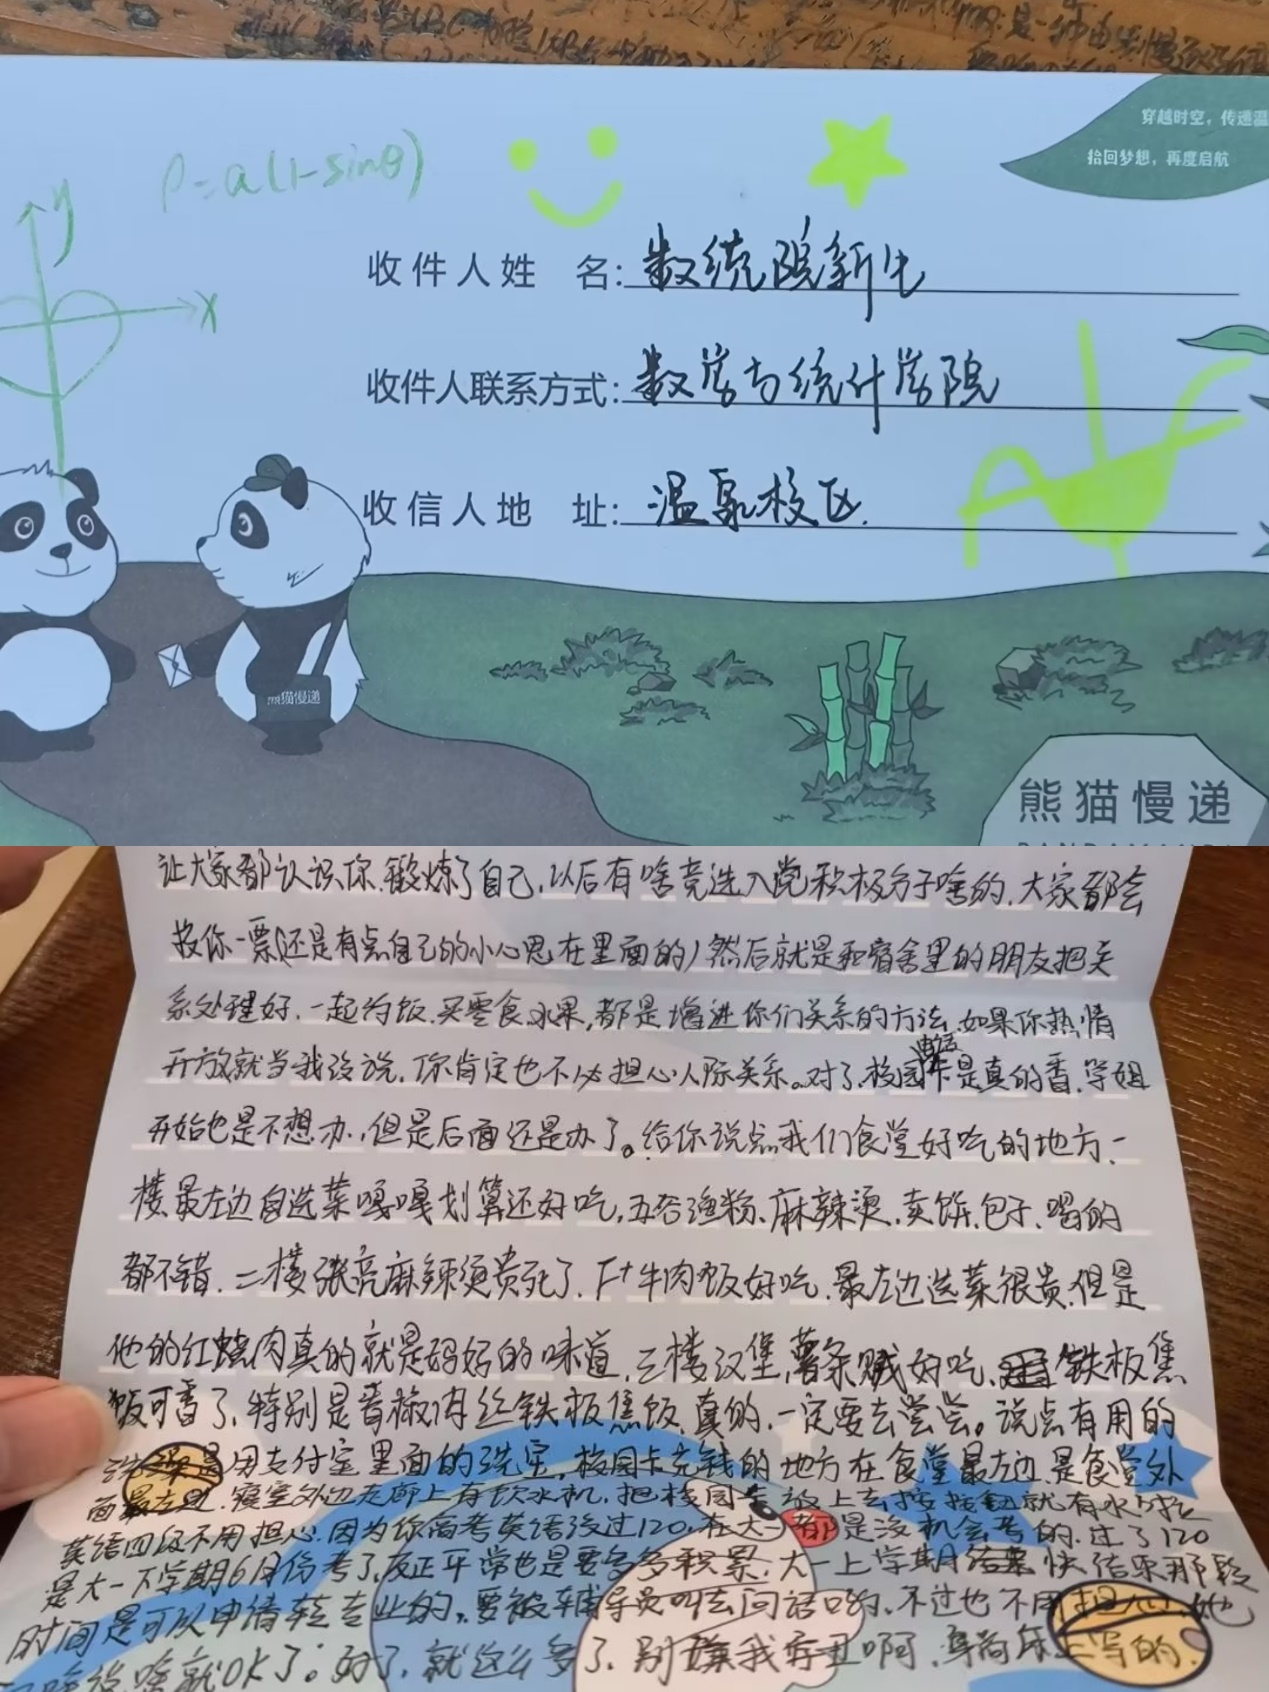 穿越时空，传递温
拾回梦想，再度启航
ρ=a(1-sinθ)
y
x
收件人姓 名：数统院新生
收件人联系方式：数学与统计学院
收信人地 址：温泉校区
熊猫慢递
熊猫慢递
让大家都认识你，锻炼了自己，以后有啥竞选入党积极分子啥的，大家都会
投你一票(还是有点自己的小心思在里面的)然后就是和宿舍里的朋友把关
系处理好，一起约饭，买零食，水果，都是增进你们关系的方法，如果你热情
开放就当我没说，你肯定也不必担心人际关系。对了，校园电话卡是真的香，学姐
开始也是不想办，但是后面还是办了。给你说点我们食堂好吃的地方，一
楼最左边自选菜嘎嘎划算还好吃，五谷渔粉、麻辣烫、卖饼、包子、喝的
都不错，二楼张亮麻辣烫贵死了，F+牛肉饭好吃，最左边选菜很贵，但是
他的红烧肉真的就是妈妈的味道，三楼汉堡，薯条贼好吃，铁板焦
饭可香了，特别是青椒肉丝铁板焦饭，真的，一定要去尝尝。说点有用的
是用支付宝里面的洗宝，校园卡充钱的地方在食堂最左边，是食堂外
面最左边，寝室外边走廊上有饮水机，把校园卡放上去按按钮就有水
英语四级不用担心，因为你高考英语没过120，在大一都是没机会考的，过了120
是大一下学期6月份考了，反正平常也是要多多积累，大一上学期快结束那段
时间是可以申请转专业的，要被辅导员叫去问话的，不过也不用担心，她
说啥就OK了。对了，就这么多了，别嫌我字丑啊，